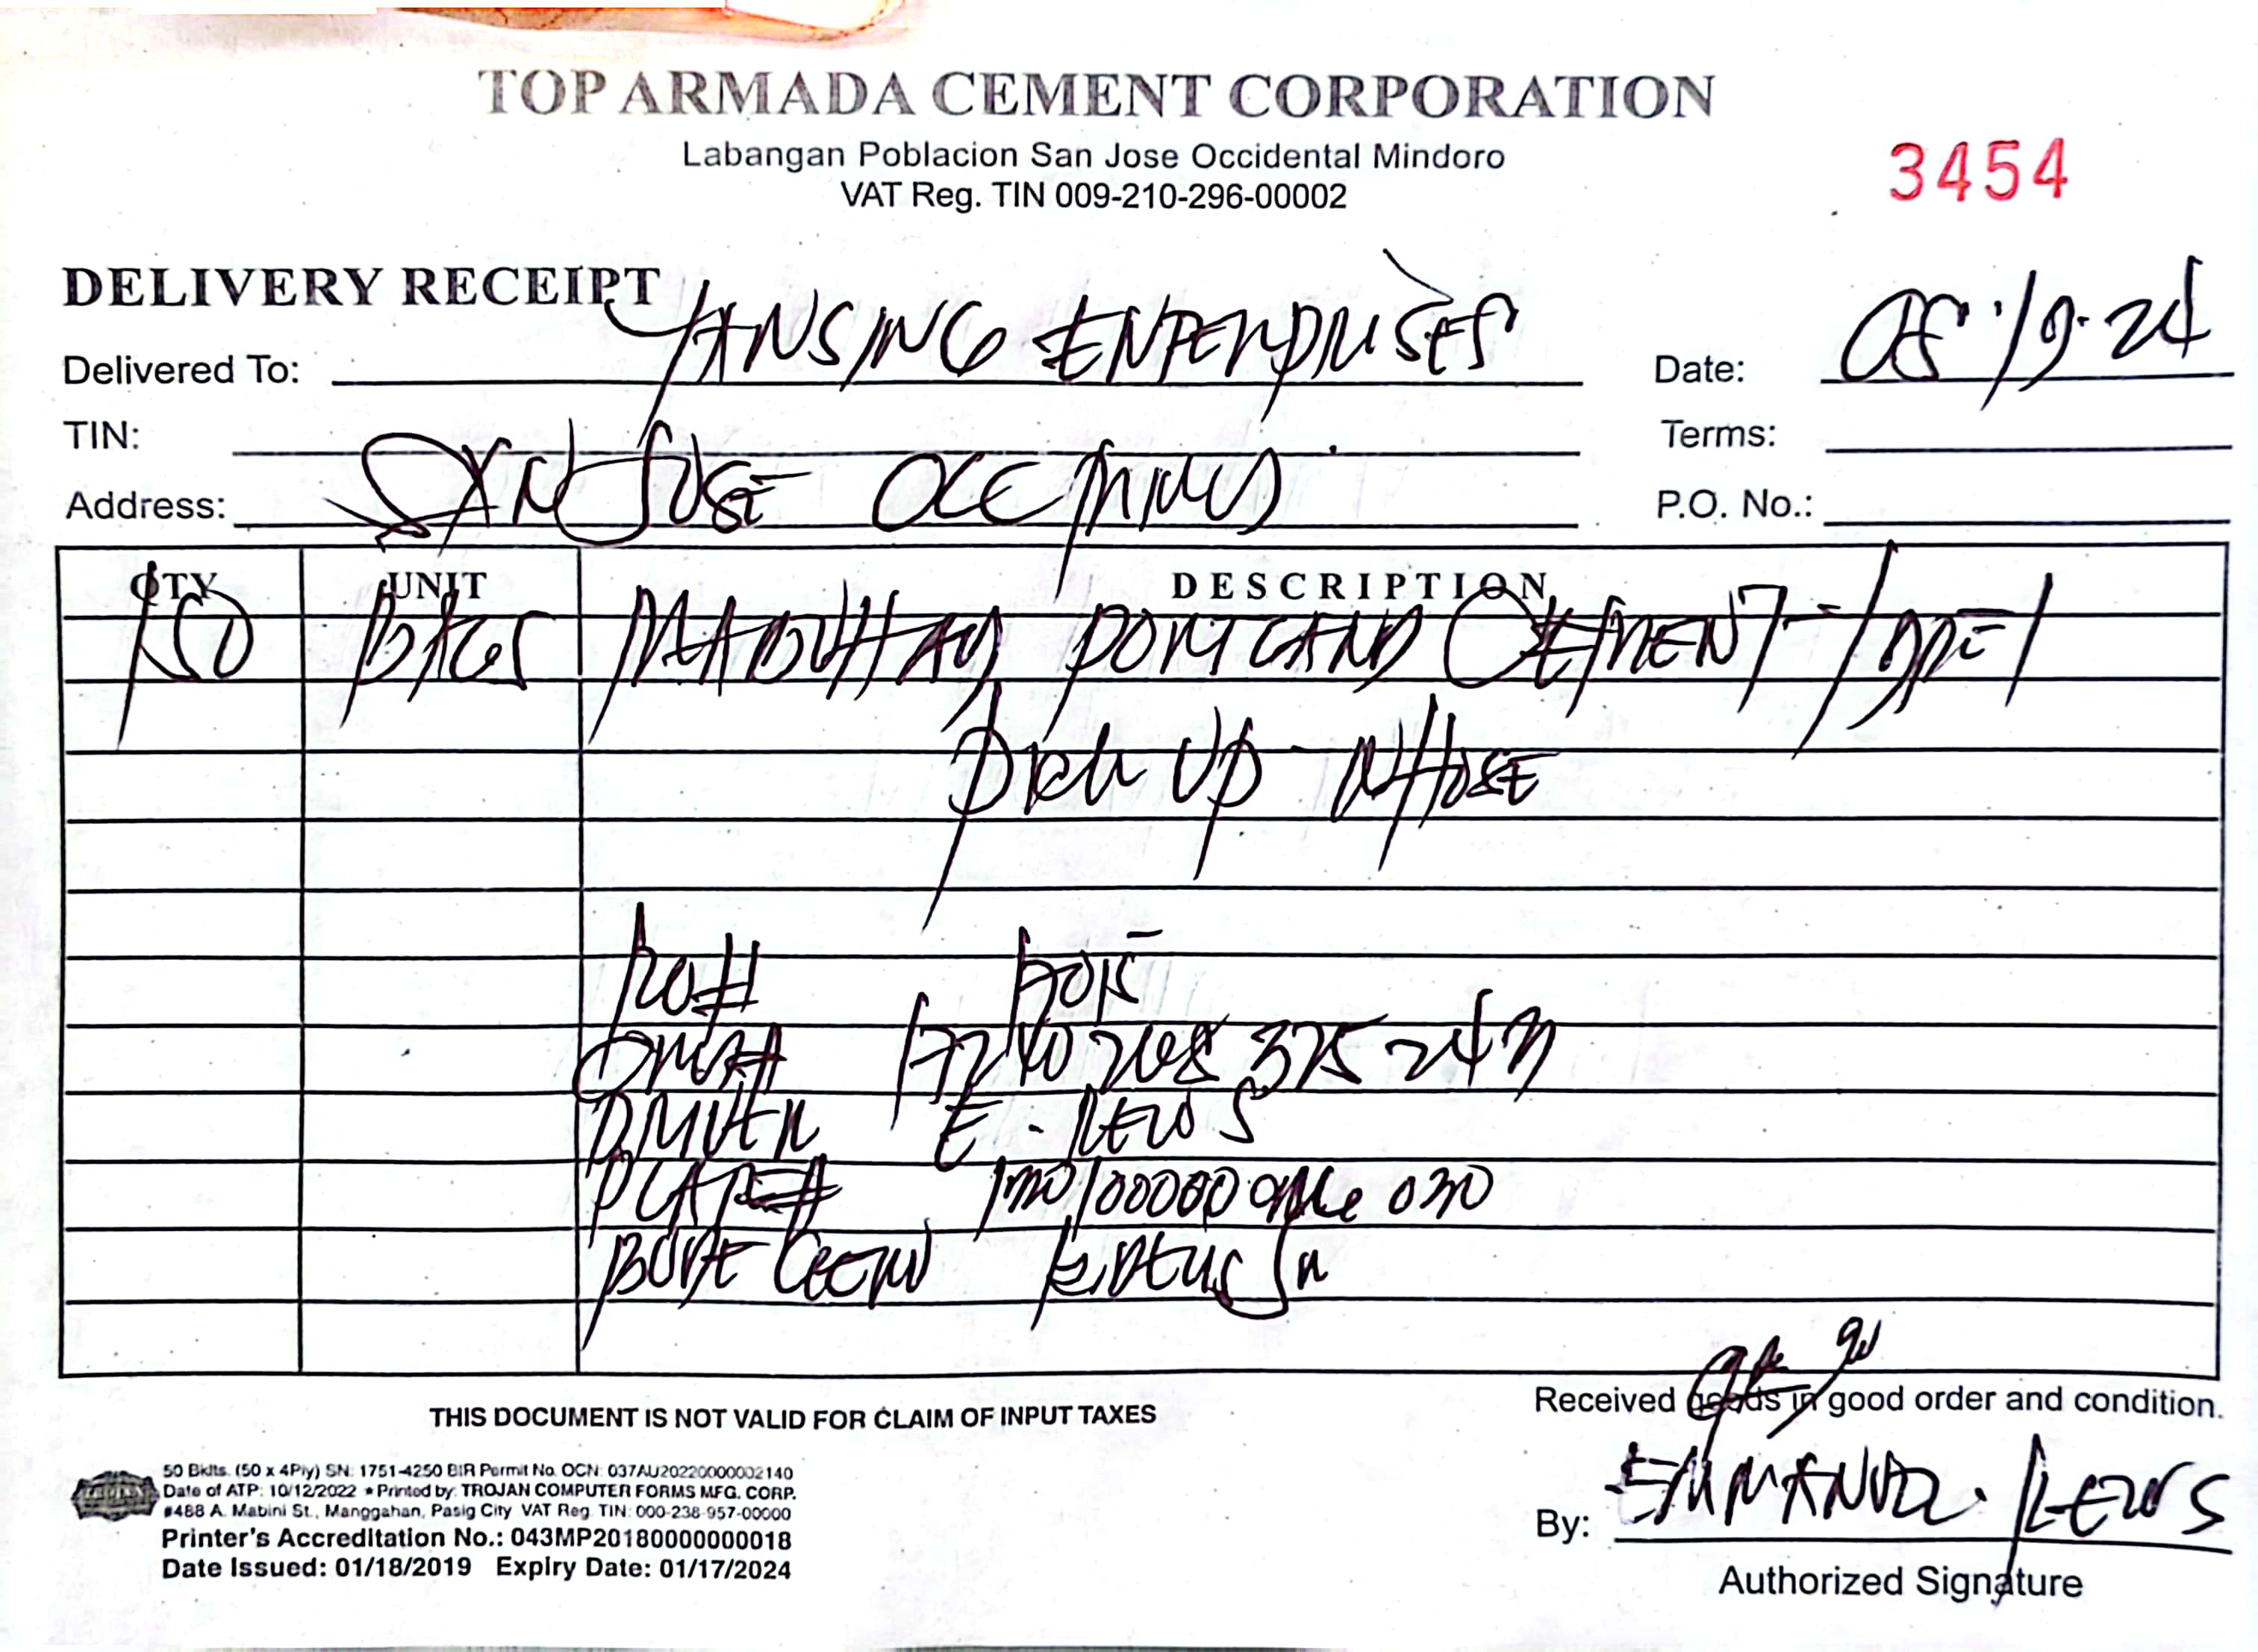 TOP ARMADA CEMENT CORPORATION
Labangan Poblacion San Jose Occidental Mindoro
VAT Reg. TIN 009-210-296-00002
3454
DELIVERY RECEIPT
Delivered To: YANSING ENTERPRISES
Date: 08-19-24
TIN:
Terms:
Address: SAN JOSE OCC
P.O. No.:
QTY UNIT DESCRIPTION
150 BAGS PORTLAND CEMENT - TYPE 1
PICK UP - WHOSE
PO#
DRIVER E. REYES
PLATE#
THIS DOCUMENT IS NOT VALID FOR CLAIM OF INPUT TAXES
Received goods in good order and condition.
50 Bklts. (50 x 4Ply) SN: 1751-4250 BIR Permit No. OCN: 037AU20220000002140
Date of ATP: 10/12/2022 * Printed by: TROJAN COMPUTER FORMS MFG. CORP.
#488 A. Mabini St., Manggahan, Pasig City VAT Reg. TIN: 000-238-957-00000
Printer's Accreditation No.: 043MP20180000000018
Date Issued: 01/18/2019 Expiry Date: 01/17/2024
By: EMMANUEL REYES
Authorized Signature